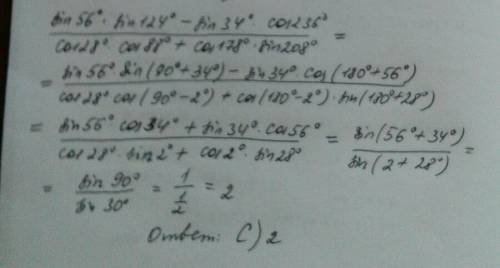 (sin 56° · sin 124° − sin 34° · cos 236°) / (cos 28° · cos 88° + cos 178° · sin 208°) =
= (sin 56° · sin(90° + 34°) − sin 34° · cos(180° + 56°)) / (cos 28° cos(90° − 2°) + cos(180° − 2°) · sin(180° + 28°))
= (sin 56° cos 34° + sin 34° · cos 56°) / (cos 28° · sin 2° + cos 2° · sin 28°) = sin(56° + 34°) / sin(2 + 28°) =
= sin 90° / sin 30° = 1 / (1/2) = 2
Ответ: C) 2